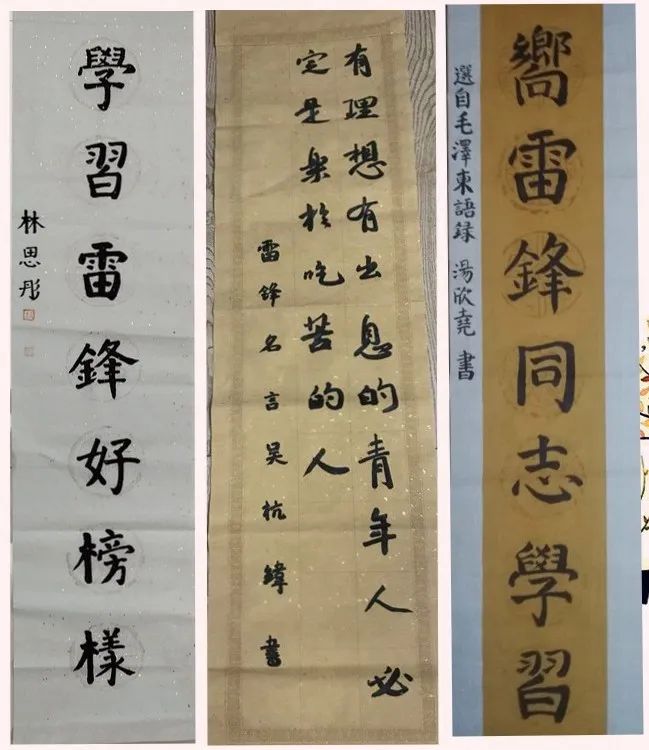 學習雷鋒好榜樣
林思彤
有理想有出息的青年人必
定是樂於吃苦的人
雷鋒名言吴杭緯書
嚮雷鋒同志學習
選自毛澤東語録 湯欣堯書